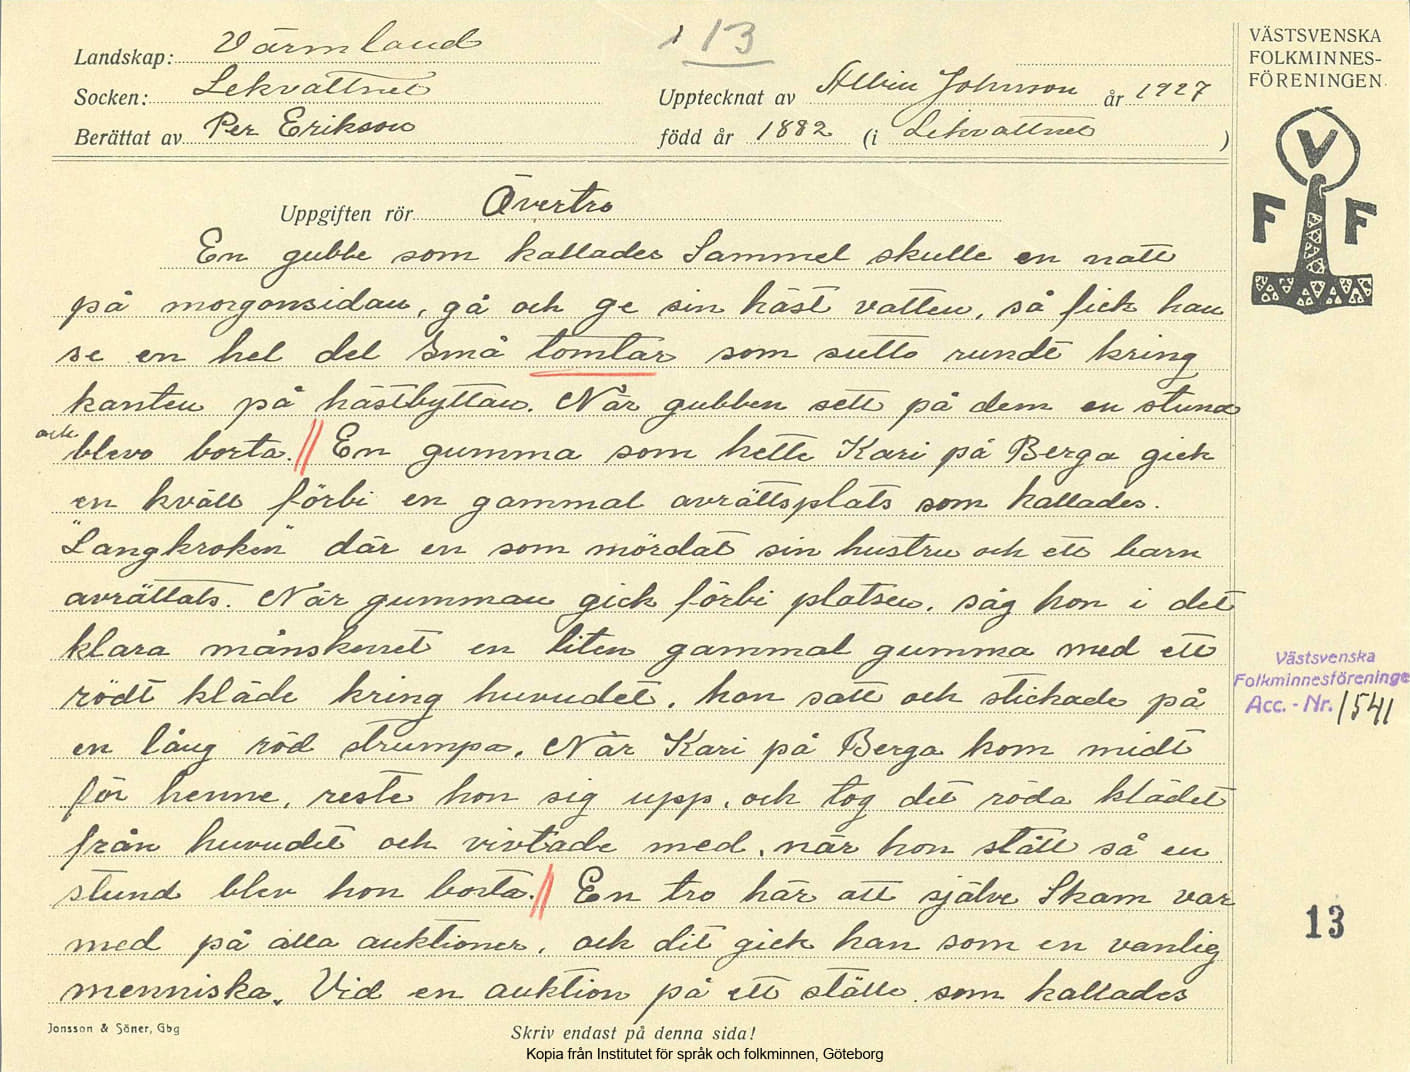 1 13
Landskap: Värmland
Socken: Lekvattnet
Berättat av Per Erikson
Upptecknat av Albin Johnson år 1927
född år 1882 (i Lekvattnet )
VÄSTSVENSKA
FOLKMINNES-
FÖRENINGEN
V
F F
Uppgiften rör Övertro
En gubbe som kallades Sammel skulle en natt
på morgonsidan, gå och ge sin häst vatten, så fick han
se en hel del små tomtar som sutto rundt kring
kanten på hästbyttan. När gubben sett på dem en stund
och
blevo borta. // En gumma som hette Kari på Berga gick
en kväll förbi en gammal avrättsplats som kallades.
"Langkroken" där en som mördat sin hustru och ett barn
avrättats. När gumman gick förbi platsen, såg hon i det
klara månskenet en liten gammal gumma med ett
rödt kläde kring huvudet, hon satt och stickade på
en lång röd strumpa. När Kari på Berga kom midt
för henne, reste hon sig upp, och tog det röda klädet
från huvudet och vivtade med, när hon stått så en
stund blev hon borta. // En tro här att själve Skam var
med på alla auktioner, och dit gick han som en vanlig
menniska. Vid en auktion på ett ställe som kallades
Västsvenska
Folkminnesföreninge
Acc. - Nr. 1541
13
Jonsson & Söner, Gbg
Skriv endast på denna sida!
Kopia från Institutet för språk och folkminnen, Göteborg